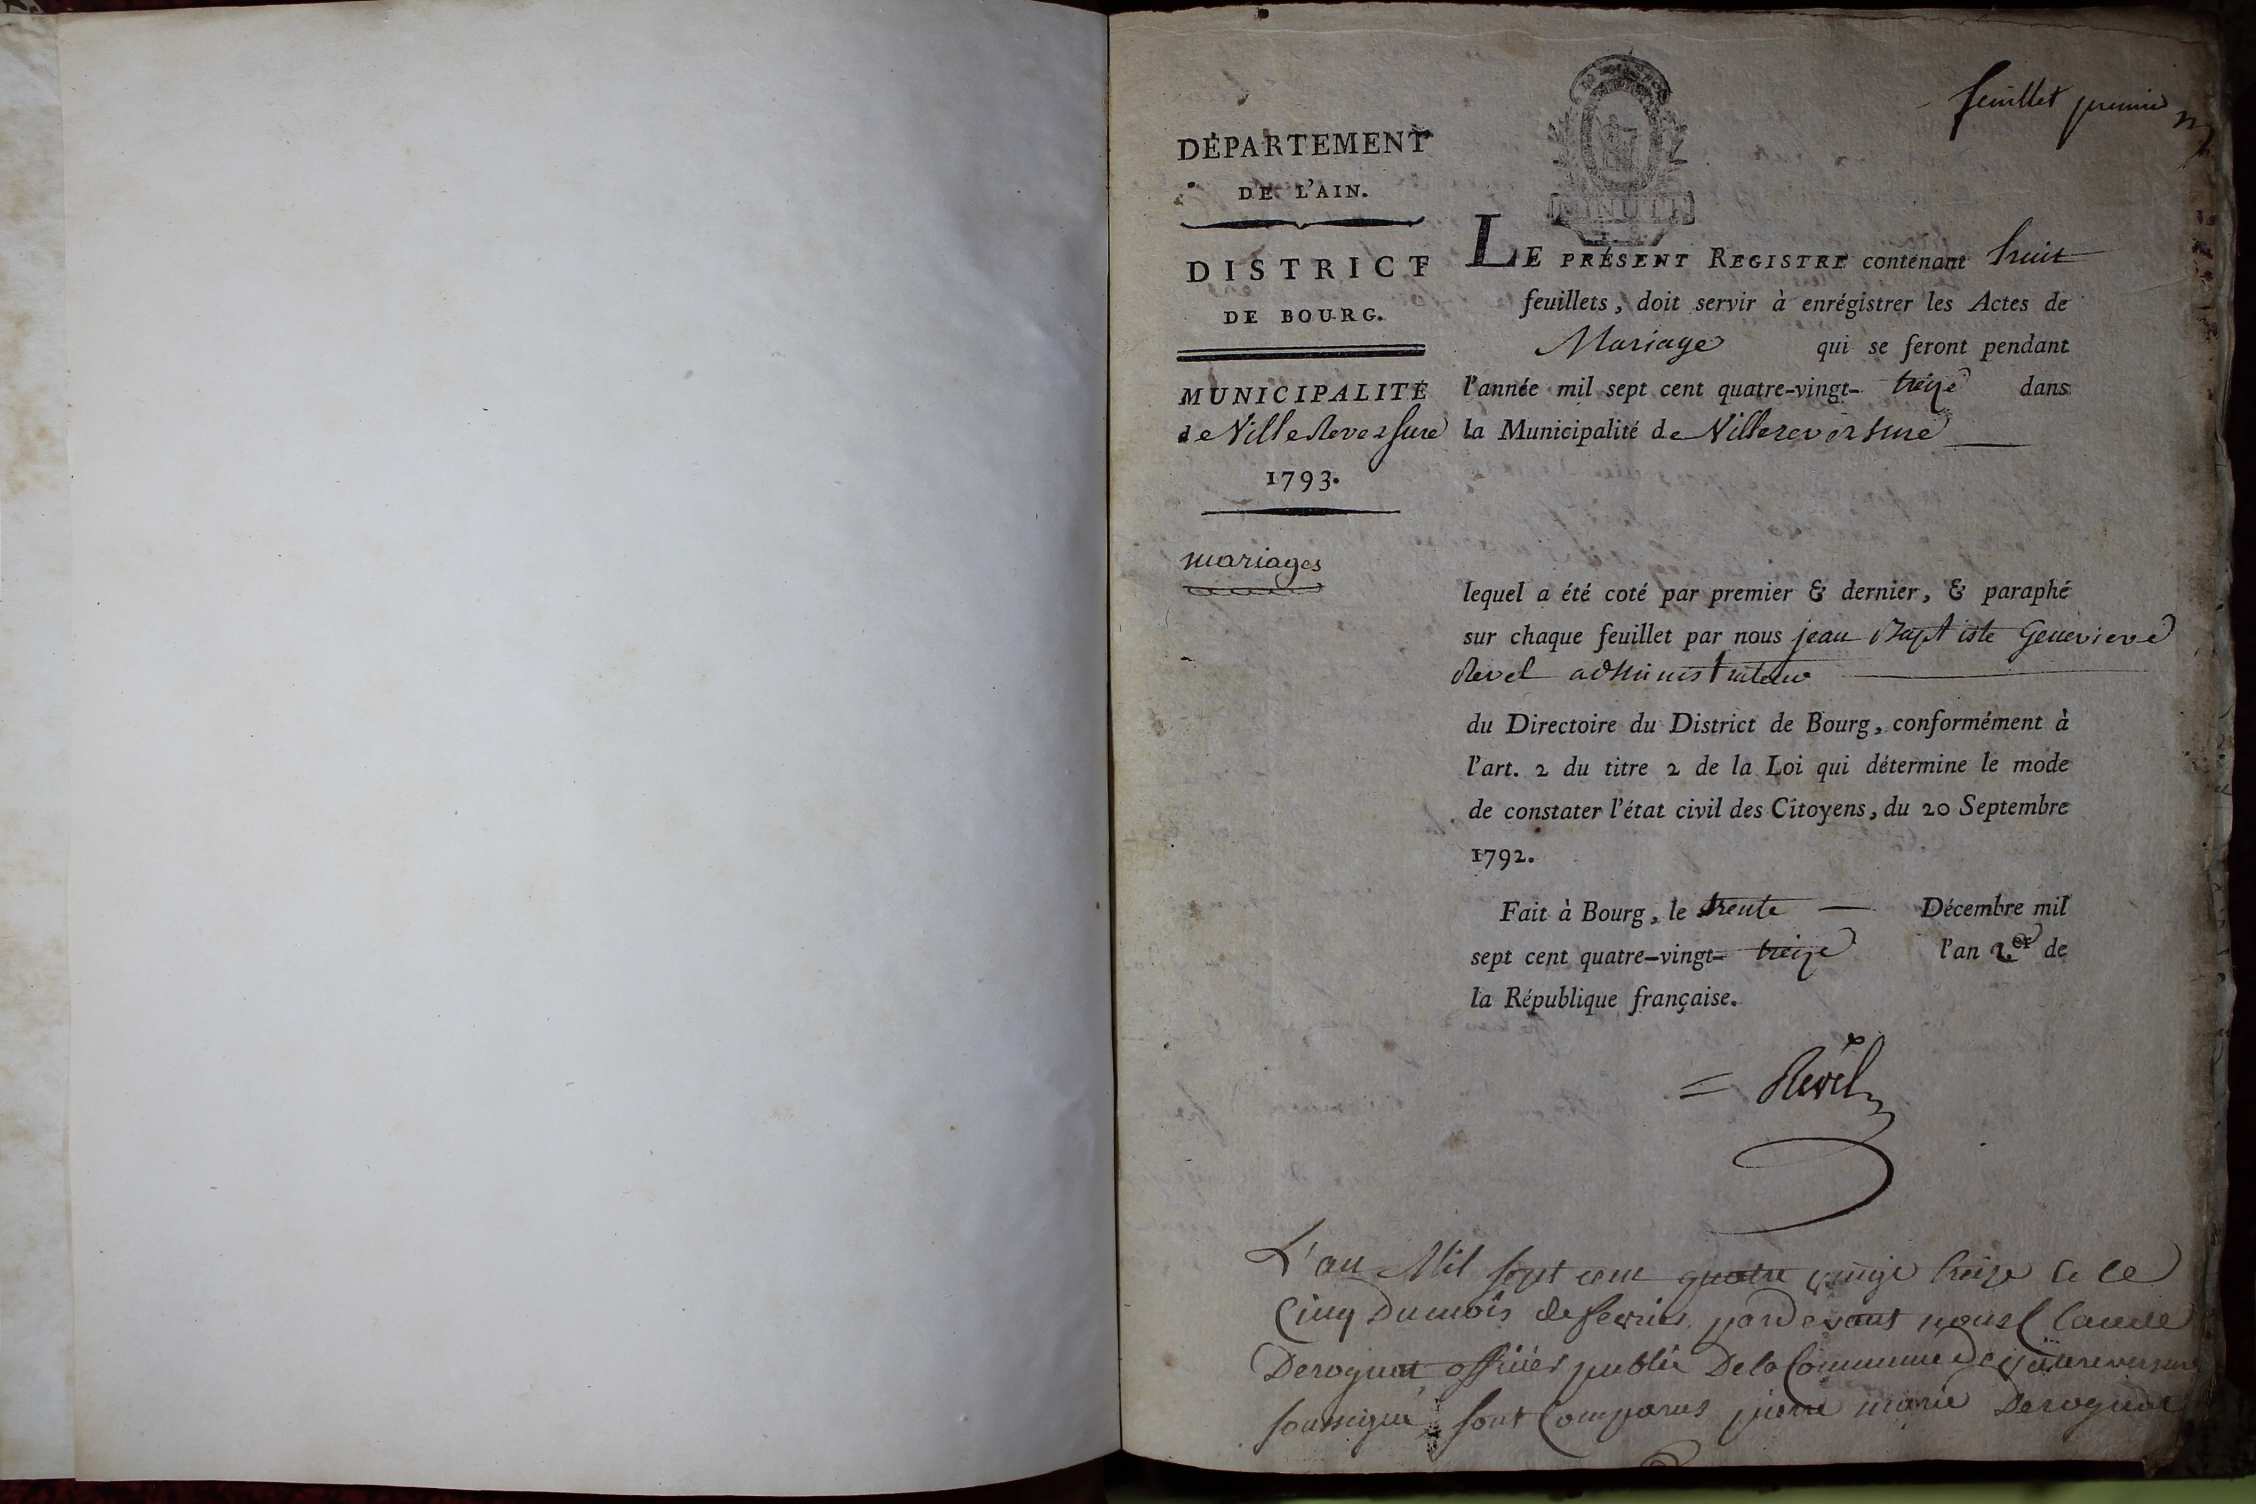 feuillet premier
DÉPARTEMENT
DE L'AIN.
DISTRICT
DE BOURG.
MUNICIPALITÉ
de Villereversure
1793.
mariages
MINUTE
LE PRÉSENT REGISTRE contenant huit
feuillets, doit servir à enrégistrer les Actes de
Mariage qui se feront pendant
l'année mil sept cent quatre-vingt- treize dans
la Municipalité de Villereversure
lequel a été coté par premier & dernier, & paraphé
sur chaque feuillet par nous jean Baptiste Genevieve
Revel administrateur
du Directoire du District de Bourg, conformément à
l'art. 2 du titre 2 de la Loi qui détermine le mode
de constater l'état civil des Citoyens, du 20 Septembre
1792.
Fait à Bourg, le trente Décembre mil
sept cent quatre-vingt- treize l'an 2er de
la République française.
Revel
L'an Mil sept cent quatre vingt treize & le
Cinq du mois de fevrier pardevant nous Claude
Derognat officier public De la Commune de villereversure
soussigné sont Comparus pierre marie Derognat